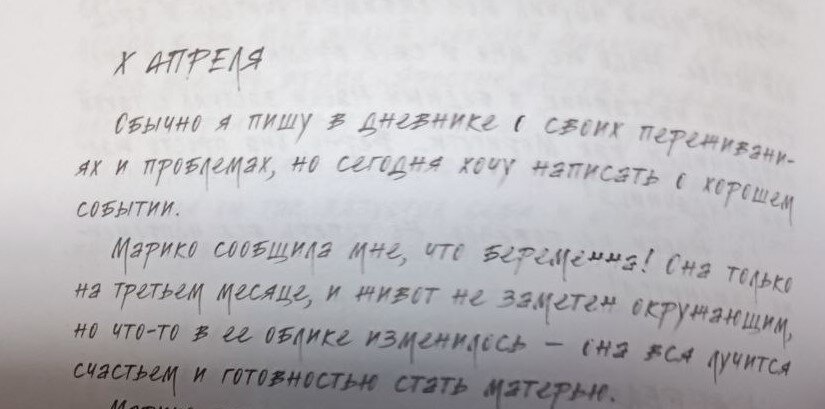 X АПРЕЛЯ
Обычно я пишу в дневнике о своих переживани-
ях и проблемах, но сегодня хочу написать о хорошем
событии.
Марико сообщила мне, что беременна! Она только
на третьем месяце, и живот не заметен окружающим,
но что-то в ее облике изменилось – она вся лучится
счастьем и готовностью стать матерью.